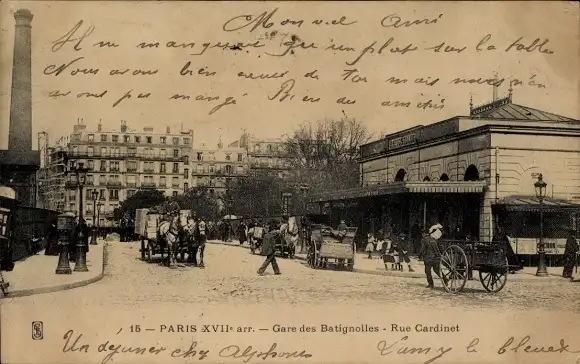 Mon viel Ami
Il ne manquait qu'un plat sur la table
Nous avons bien de mais nous n'en
avons pas mangé Bien des amitiés
15 — PARIS XVIIe arr. — Gare des Batignolles - Rue Cardinet
Un dejeuner chez Alphonse
Lamy le bleux